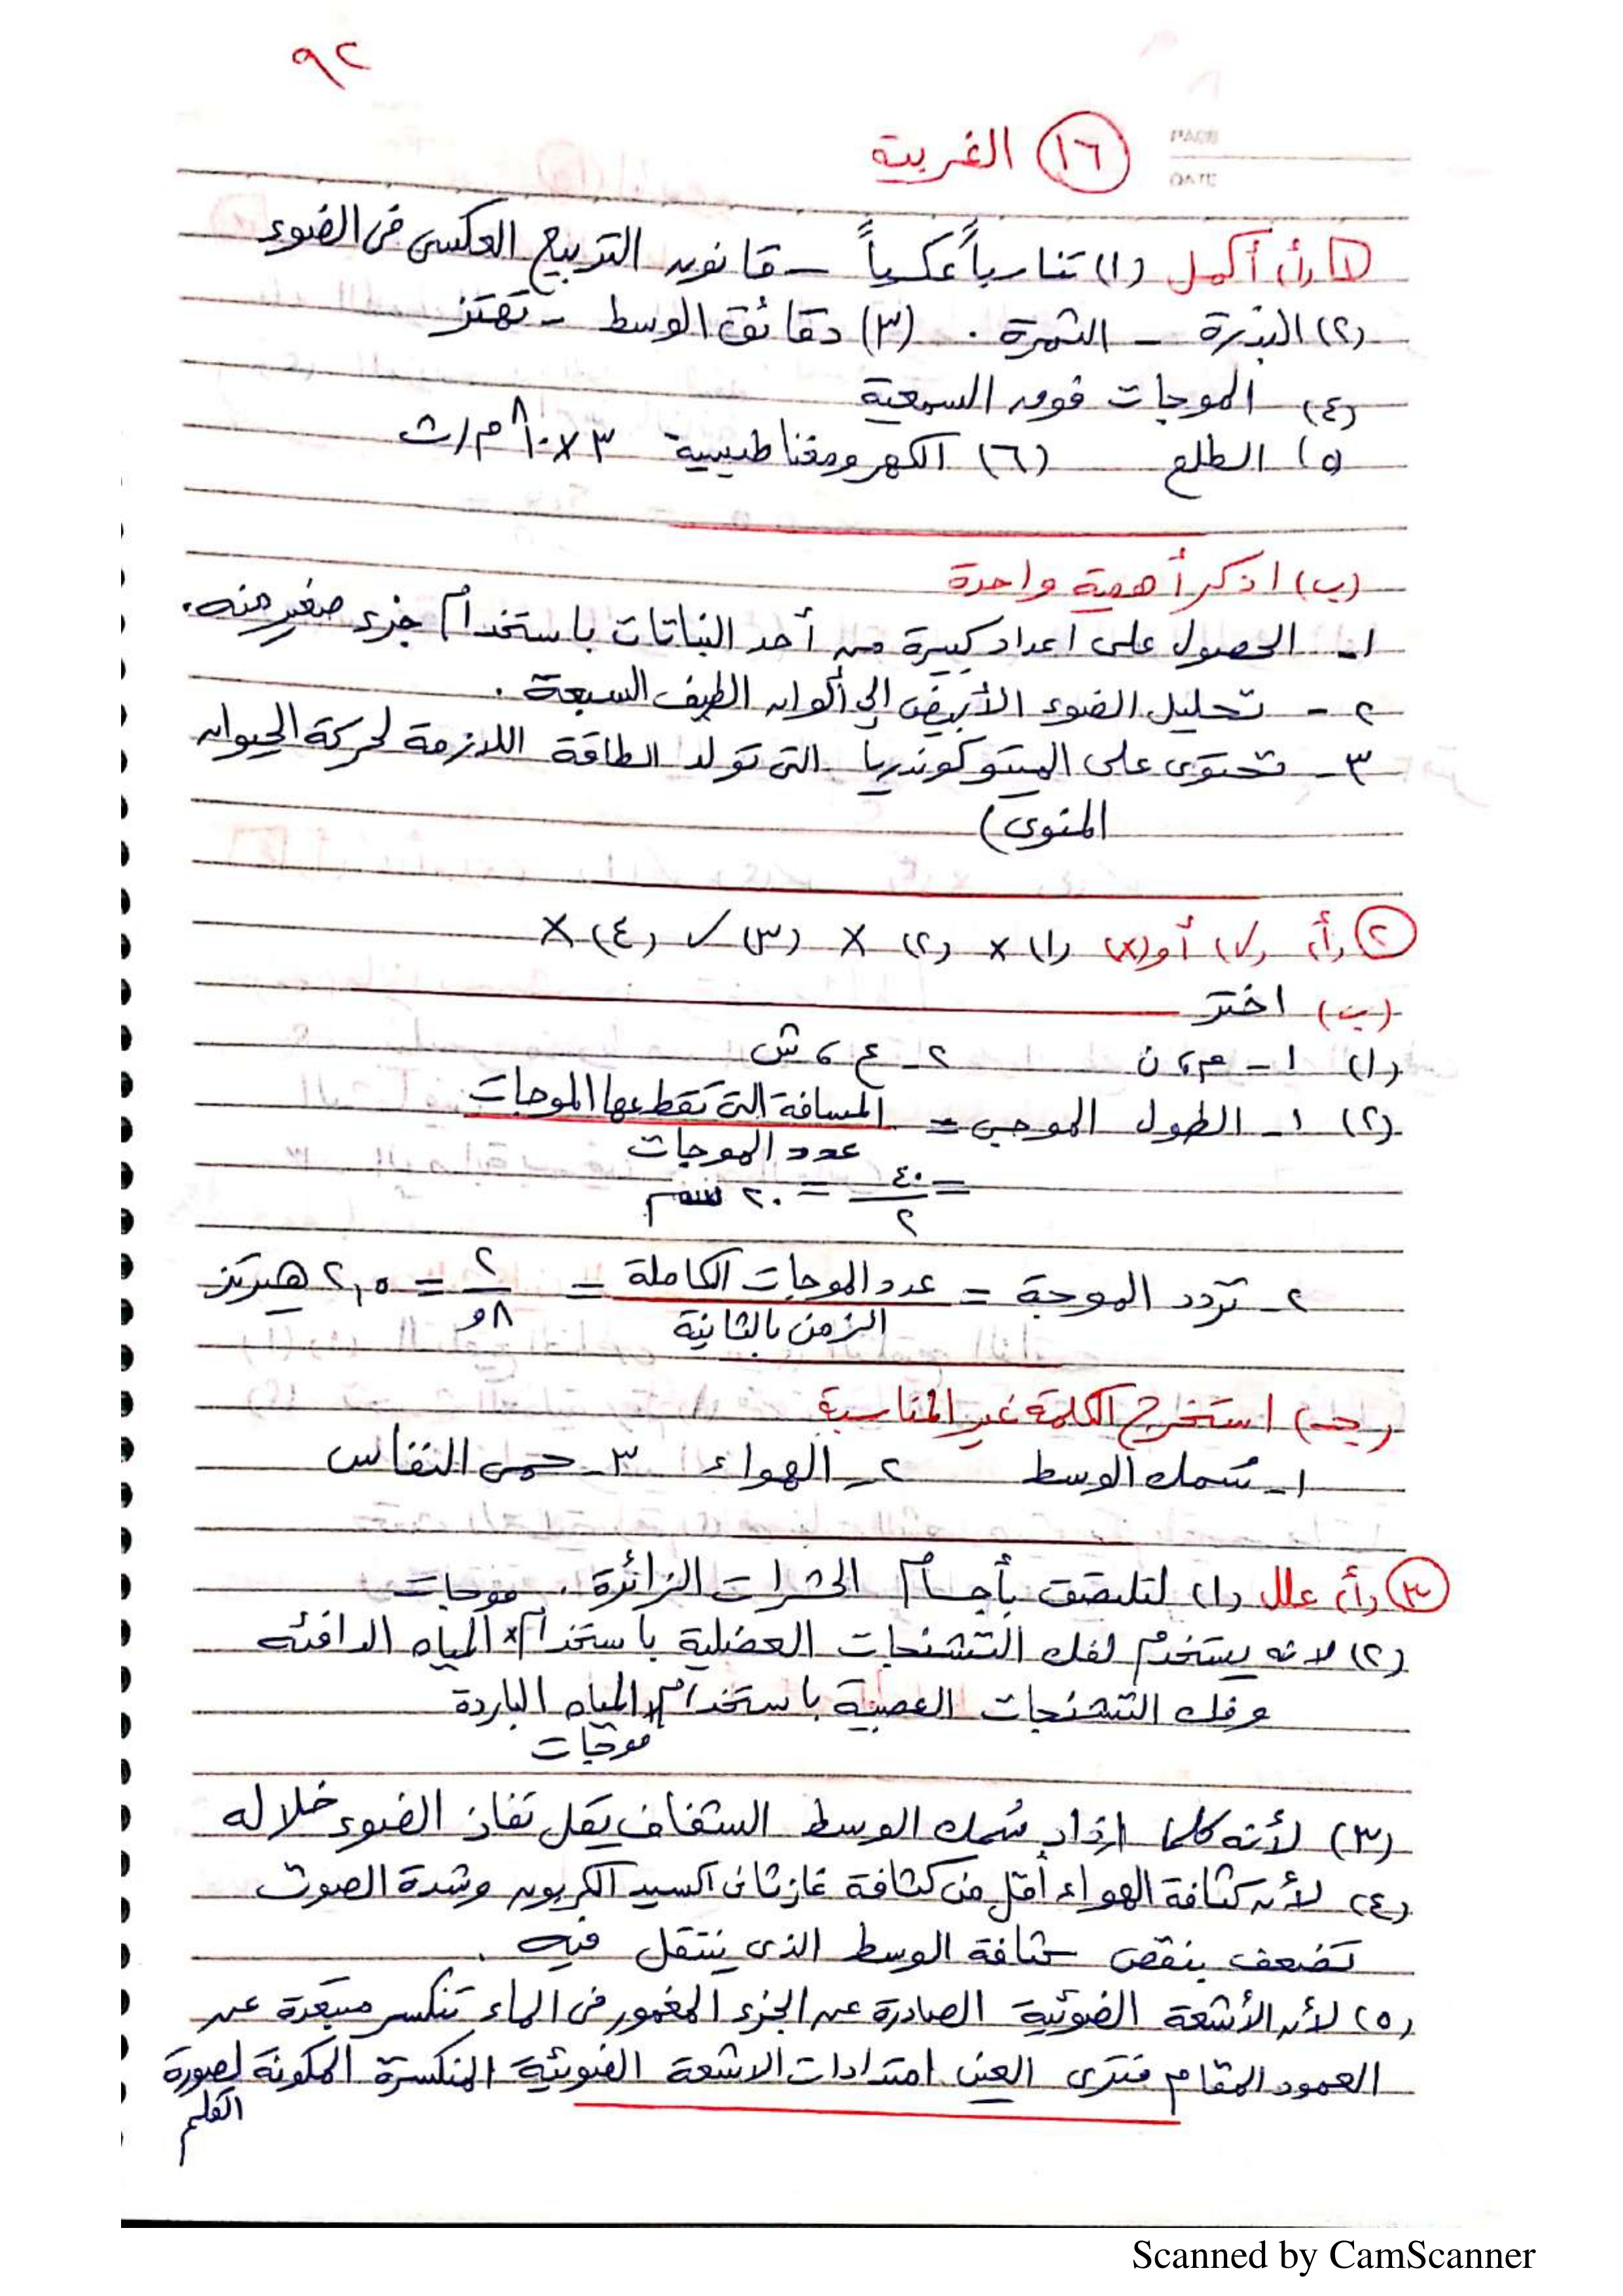 ٩٢
١٦ الغربية
١ (أ) أكمل (١) تناسباً عكسياً - قانون التربيع العكسى فى الضوء
(٢) البذرة - الثمرة . (٣) دقائق الوسط - تهتز
(٤) الموجات فوق السمعية
(٥) الطلع (٦) الكهرومغناطيسية ٣ × ١٠^٨ م/ث
(ب) اذكر أهمية واحدة
١- الحصول على اعداد كبيرة من أحد النباتات باستخدام جزء صغير منه.
٢- تحليل الضوء الأبيض إلى ألوان الطيف السبعة .
٣- تحتوى على الميتوكوندريا التى تولد الطاقة اللازمة لحركة الحيوان
المنوى)
٢ (أ) (√) أو (x) (١) x (٢) x (٣) √ (٤) x
(ب) اختر
(١) ١- م ، ن ٢- ع ، ش
(٢) ١- الطول الموجى = المسافة التى تقطعها الموجات
عدد الموجات
= ٤٠/٢ = ٢٠ سم
٢- تردد الموجة = عدد الموجات الكاملة = ٢ = ٢,٥ هيرتز
الزمن بالثانية ٨و
(جـ) استخرج الكلمة غير المناسبة
١- سُمك الوسط ٢- الهواء ٣- حمى النفاس
٣ (أ) علل (١) لتلتصق بأجسام الحشرات الزائرة . موجات
(٢) لانه يستخدم لفك التشنجات العضلية باستخدام x المياه الدافئه
وفك التشنجات العصبية باستخدام x المياه الباردة
موجات
(٣) لأنه كلما ازداد سُمك الوسط الشفاف يقل نفاذ الضوء خلاله
(٤) لأن كثافة الهواء أقل من كثافة غاز ثانى اكسيد الكربون وشدة الصوت
تضعف بنقص كثافة الوسط الذى ينتقل فيه .
(٥) لأن الأشعة الضوئية الصادرة عن الجزء المغمور فى الماء تنكسر مبتعدة عن
العمود المقام فترى العين امتدادات الاشعة الضوئية المنكسرة المكونة لصورة
القلم
Scanned by CamScanner